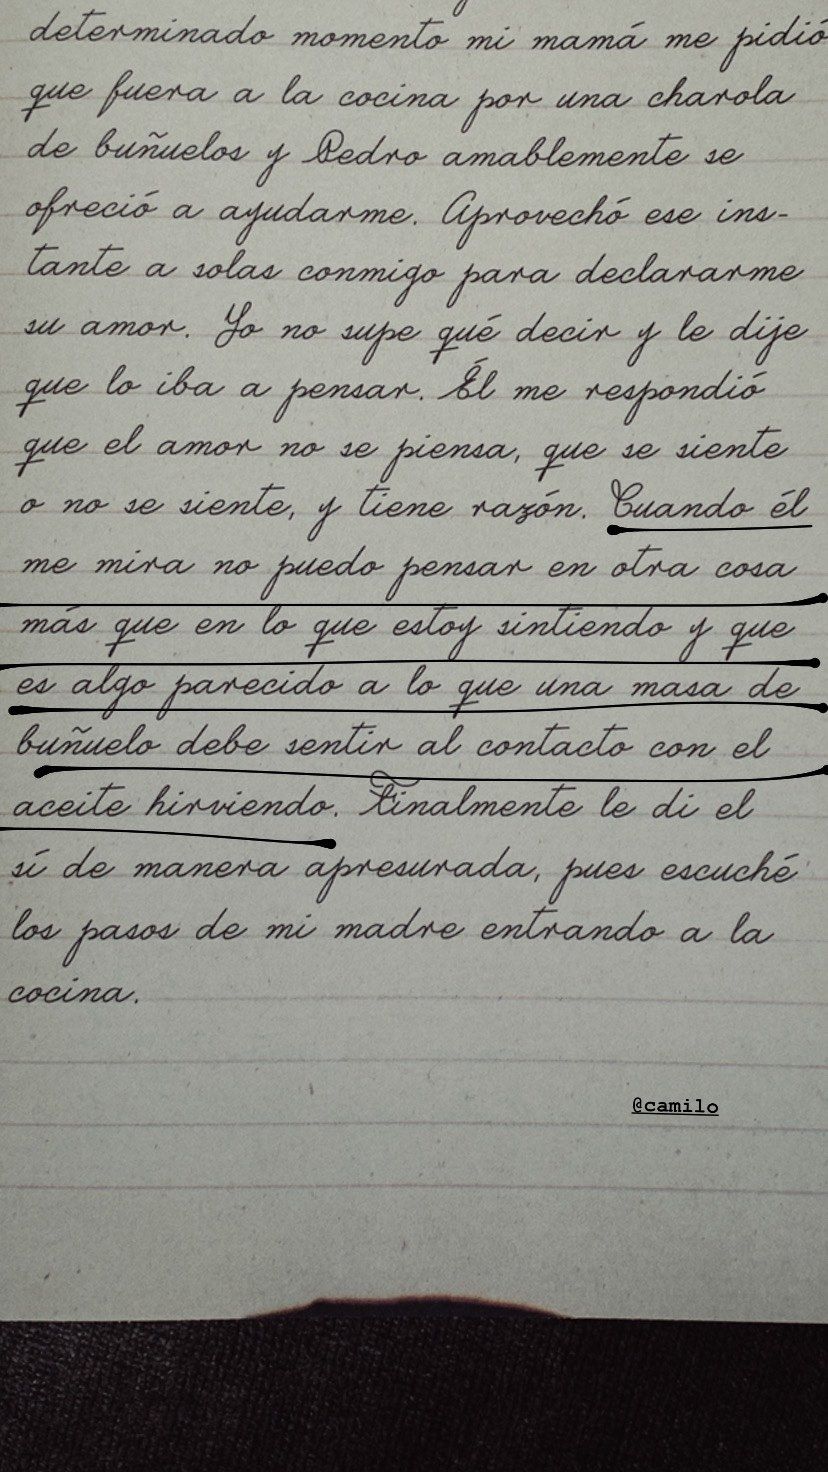 determinado momento mi mamá me pidió
que fuera a la cocina por una charola
de buñuelos y Pedro amablemente se
ofreció a ayudarme. Aprovechó ese ins-
tante a solas conmigo para declararme
su amor. Yo no supe qué decir y le dije
que lo iba a pensar. Él me respondió
que el amor no se piensa, que se siente
o no se siente, y tiene razón. Cuando él
me mira no puedo pensar en otra cosa
más que en lo que estoy sintiendo y que
es algo parecido a lo que una masa de
buñuelo debe sentir al contacto con el
aceite hirviendo. Finalmente le di el
sí de manera apresurada, pues escuché
los pasos de mi madre entrando a la
cocina.
@camilo